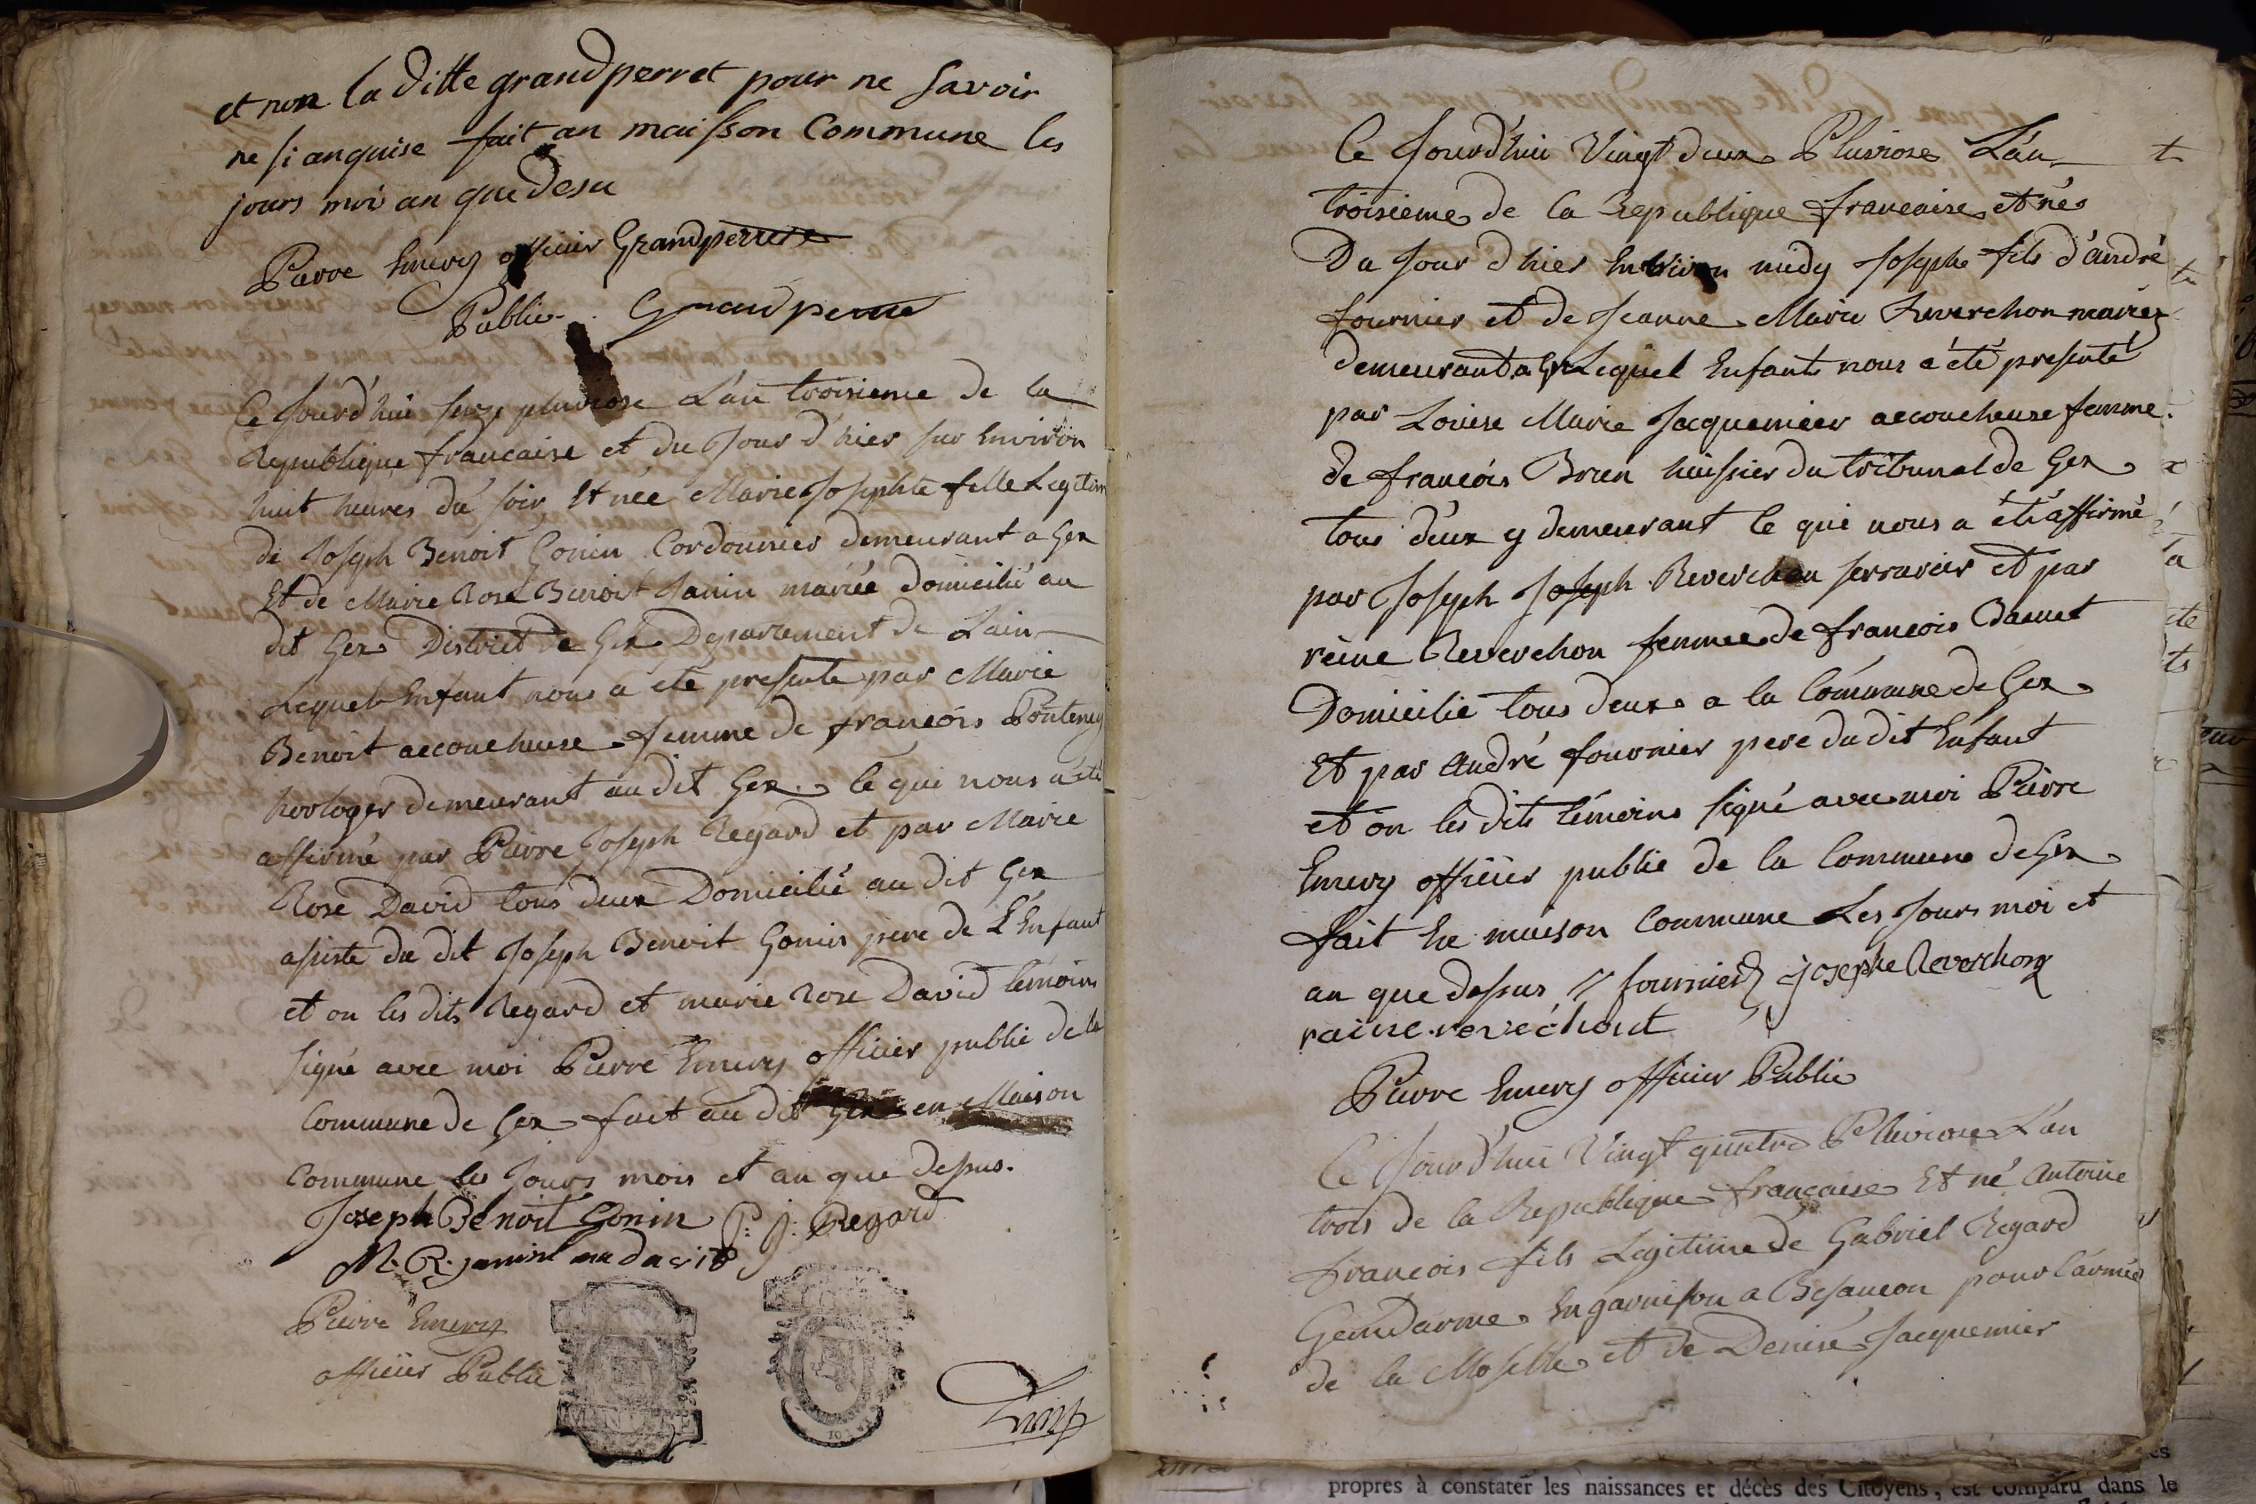 et non la ditte grandperret pour ne savoir
ne si anquise fait an maisson Commune les
jours moi an que desu
Pierre Emery officier Grandperret
Public. Grandperret
Ce Jourd'hui seize pluviose L'an troisieme de la
Republique francaise et du Jour d'hier sur Environ
huit heures du soir Et née Marie Josephte fille Legitim
de Joseph Benoit Gonin Cordonnier demeurant a Gex
Et de Marie Rose Benoit Janin mariée Domicilié au
dit Gex District de Gex Departement de L'ain
Lequel Enfant nous a été presenté par Marie
Benoit accoucheuse femme de francois Ponteney
horloger demeurant au dit Gex. ce qui nous a été
affirmé par Pierre Joseph Regard et par Marie
Rose David tous deux Domicilié au dit Gex
asisté du dit Joseph Benoit Gonin pere de L'Enfant
et on les dits Regard et marie Rose David temoins
signé avec moi Pierre Emery officier public de la
Commune de Gex fait au dit Gex en Maison
Commune les Jours mois et an que dessus.
Joseph Benoit Gonin P: J: Regard
M. R. janin ma david
Pierre Emery
officier Public
Ce Jourd'hui Vingt deux Pluviose L'an
troisieme de la Republique francaise et né
Du Jour d'hier Environ midy Joseph fils d'andré
fournier et de Jeanne Marie Reverchon mariés
demeurant a Gex Lequel Enfant nous a été presenté
par Louise Marie Jacquemier accoucheuse femme
de francois Brun huissier du tribunal de Gex
tous deux y demeurant ce qui nous a été affirmé
par Joseph Joseph Reverchon serrurier et par
reine Reverchon femme de francois
Domicilié tous deux a la Commune de Gex
Et par André fournier pere du dit Enfant
et on les dits témoins signé avec moi Pierre
Emery officier public de la Commune de Gex
fait En maison Commune Les Jours moi et
an que dessus // fournier josephe Reverchon
raine reveċhont
Pierre Emery officier Public
Ce Jourd'hui Vingt quatre Pluviose L'an
trois de la Republique francaise Et né Antoine
francois fils Legitime de Gabriel Regard
Gendarme En garnison a Besancon pour l'armée
de la Moselle et de Denise Jacquemier
propres à constater les naissances et décès des Citoyens, est comparu dans le